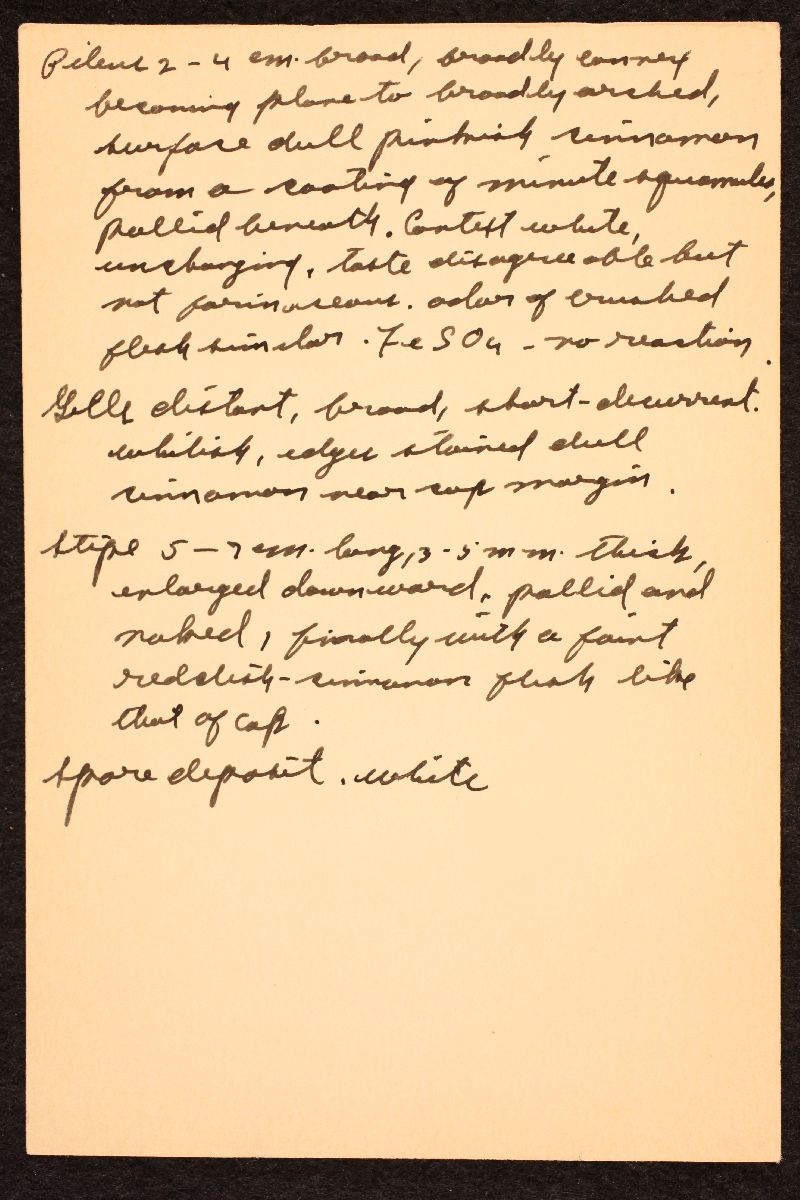 Pileus 2 - 4 cm. broad, broadly convex
becoming plane to broadly arched,
surface dull pinkish cinnamon
from a coating of minute squamules,
pallid beneath. Context white,
unchanging, taste disagreeable but
not farinaceous. odor of crushed
flesh similar. FeSO4 - no reaction.
Gills distant, broad, short-decurrent.
whitish, edges stained dull
cinnamon near cap margin.
Stipe 5 - 7 cm. long, 3 - 5 mm. thick,
enlarged downward, pallid and
naked, finally with a faint
reddish-cinnamon flesh like
that of cap.
Spore deposit. white